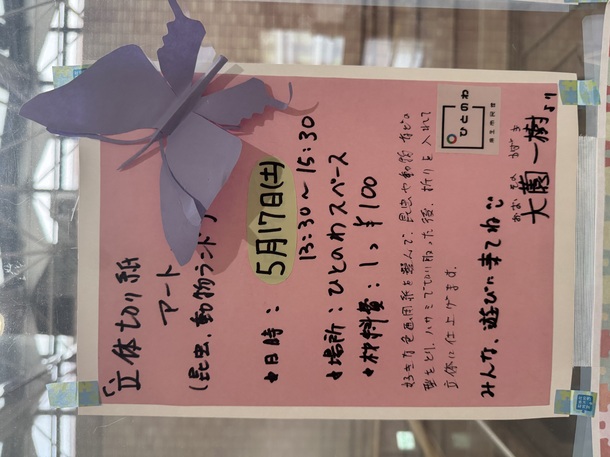 「立体切り紙
アート
(昆虫、動物ランド
・日時：5月17日(土)
13:30～15:30
・場所：ひとのわスペース
・材料費：1つ¥100
好きな色画用紙を選んで、昆虫や動物などの
型をとり、ハサミで切り取った後、折りを入れて
立体に仕上げます。
みんな、遊びに来てね
大薗 一樹より
ひとのわ